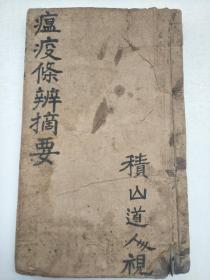 瘟疫條辨摘要
積山道人視